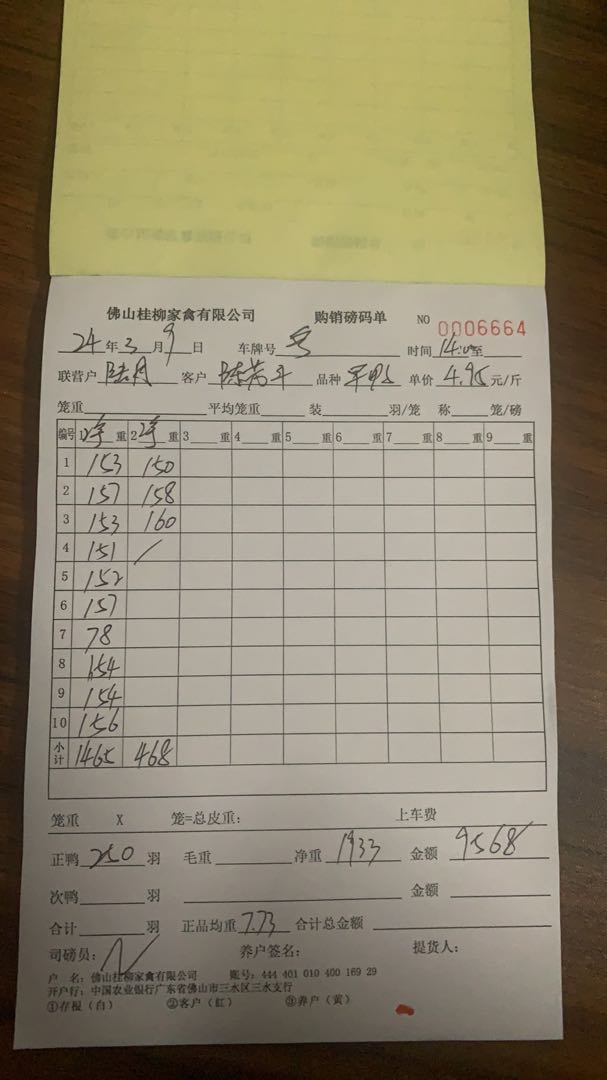 佛山桂柳家禽有限公司 购销磅码单 NO 0006664
24年3月9日 车牌号 时间14:00至
联营户 客户 陈 平 品种 单价4.95元/斤
笼重 平均笼重 装 羽/笼 称 笼/磅
编号 1净重 2净重 3 重 4 重 5 重 6 重 7 重 8 重 9 重
1 153 150
2 157 158
3 153 160
4 151 /
5 152
6 157
7 78
8 154
9 154
10 156
小计 1465 468
笼重 X 笼=总皮重: 上车费
正鸭250羽 毛重 净重1933 金额9568
次鸭 羽 金额
合计 羽 正品均重7.73 合计总金额
司磅员: 养户签名: 提货人:
户 名: 佛山桂柳家禽有限公司 账号: 444 401 010 400 169 29
开户行: 中国农业银行广东省佛山市三水区三水支行
①存根(白) ②客户(红) ③养户(黄)